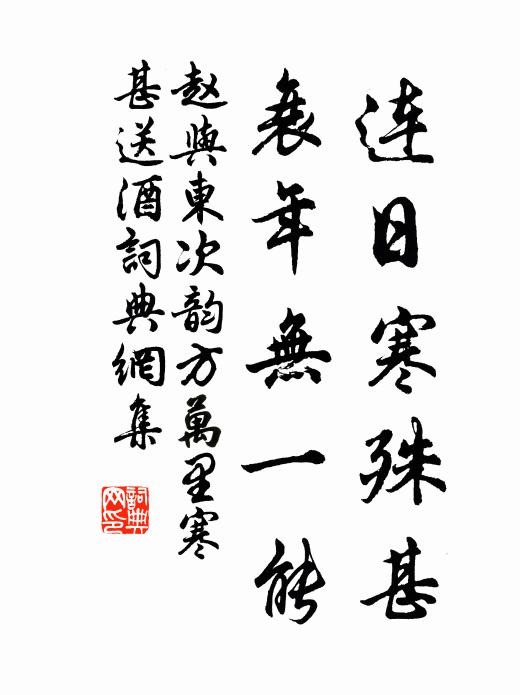 连日寒殊甚
衰年無一能
赵與東次韵方萬里寒
甚送酒詞典網集
詞典網印